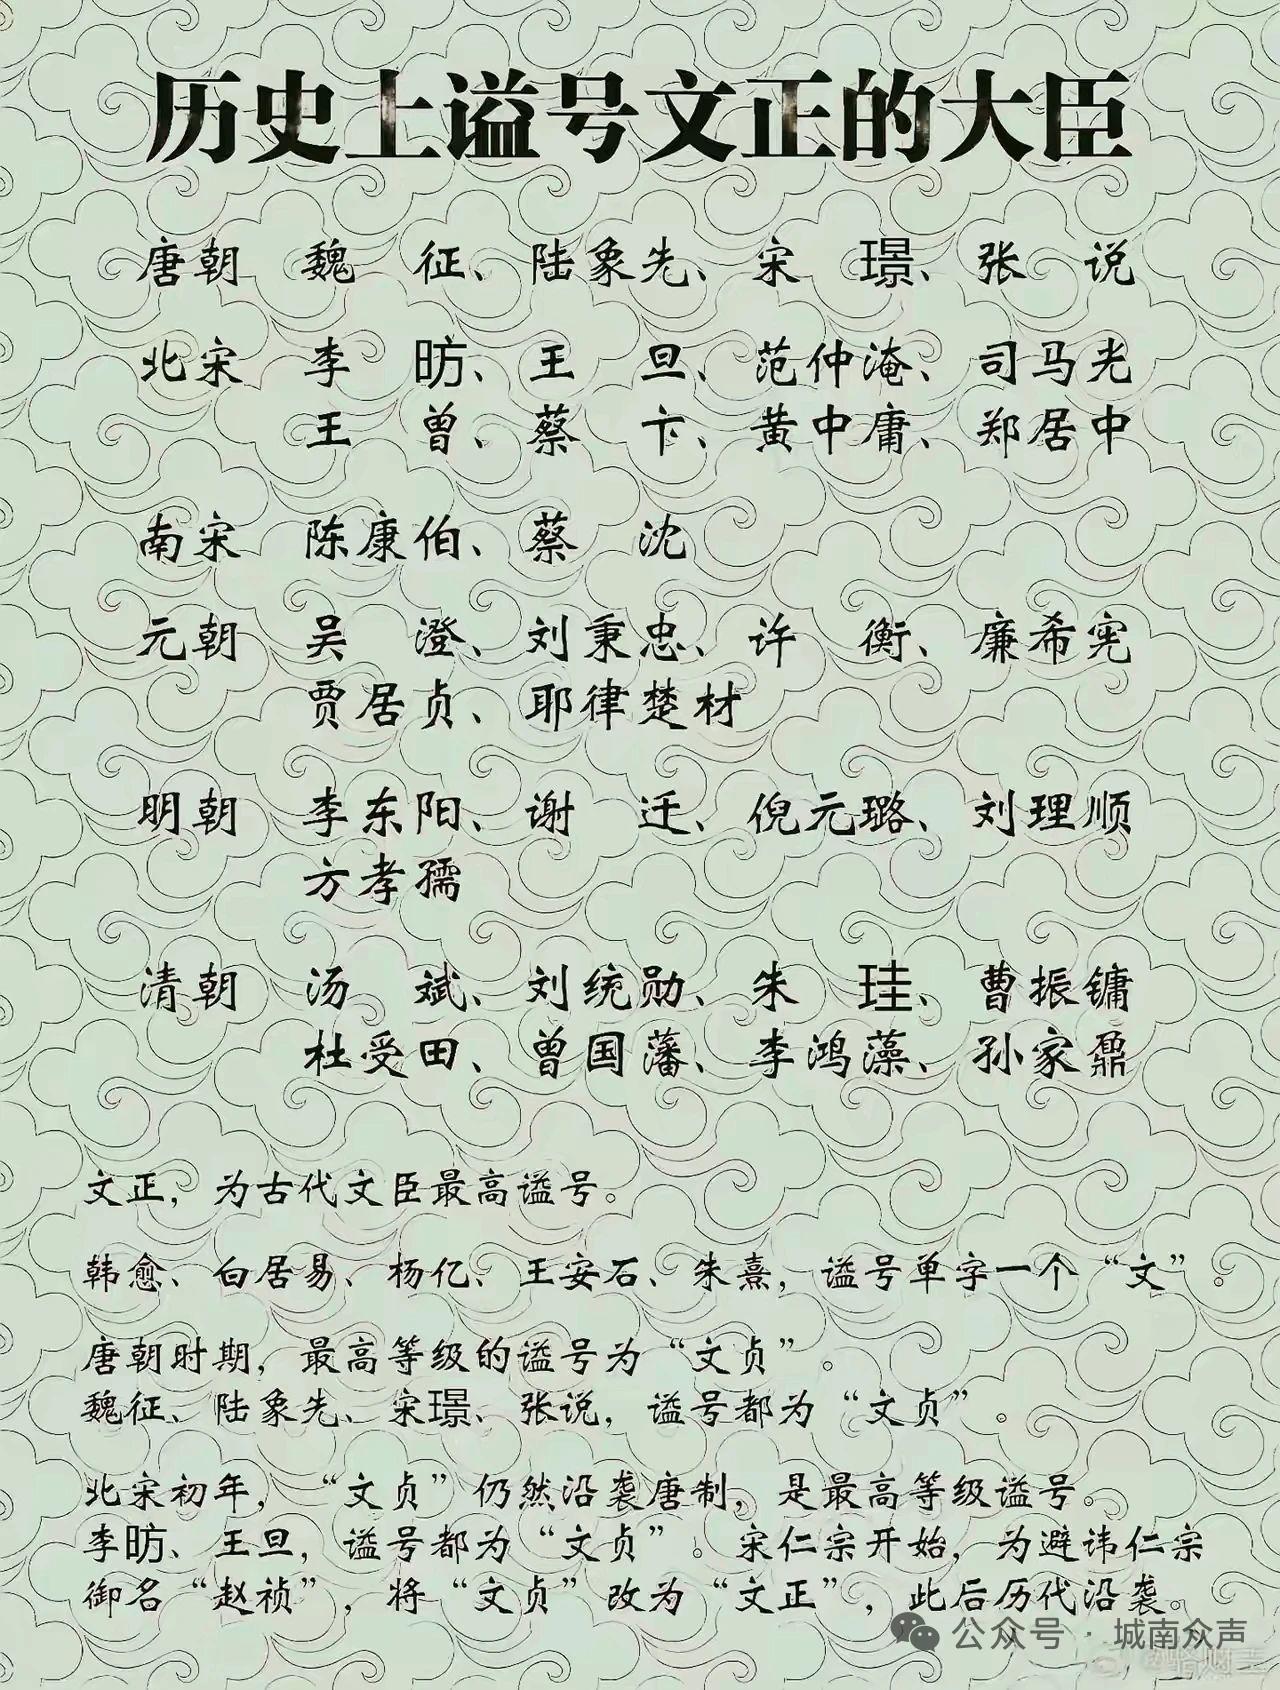 历史上谥号文正的大臣
唐朝 魏 征、陆象先、宋 璟、张 说
北宋 李 昉、王 旦、范仲淹、司马光
王 曾、蔡 卞、黄中庸、郑居中
南宋 陈康伯、蔡 沈
元朝 吴 澄、刘秉忠、许 衡、廉希宪
贾居贞、耶律楚材
明朝 李东阳、谢 迁、倪元璐、刘理顺
方孝孺
清朝 汤 斌、刘统勋、朱 珪、曹振镛
杜受田、曾国藩、李鸿藻、孙家鼐
文正，为古代文臣最高谥号。
韩愈、白居易、杨亿、王安石、朱熹，谥号单字一个“文”。
唐朝时期，最高等级的谥号为“文贞”。
魏征、陆象先、宋璟、张说，谥号都为“文贞”。
北宋初年，“文贞”仍然沿袭唐制，是最高等级谥号。
李昉、王旦，谥号都为“文贞”。宋仁宗开始，为避讳仁宗
御名“赵祯”，将“文贞”改为“文正”，此后历代沿袭。
公众号 · 城南众声